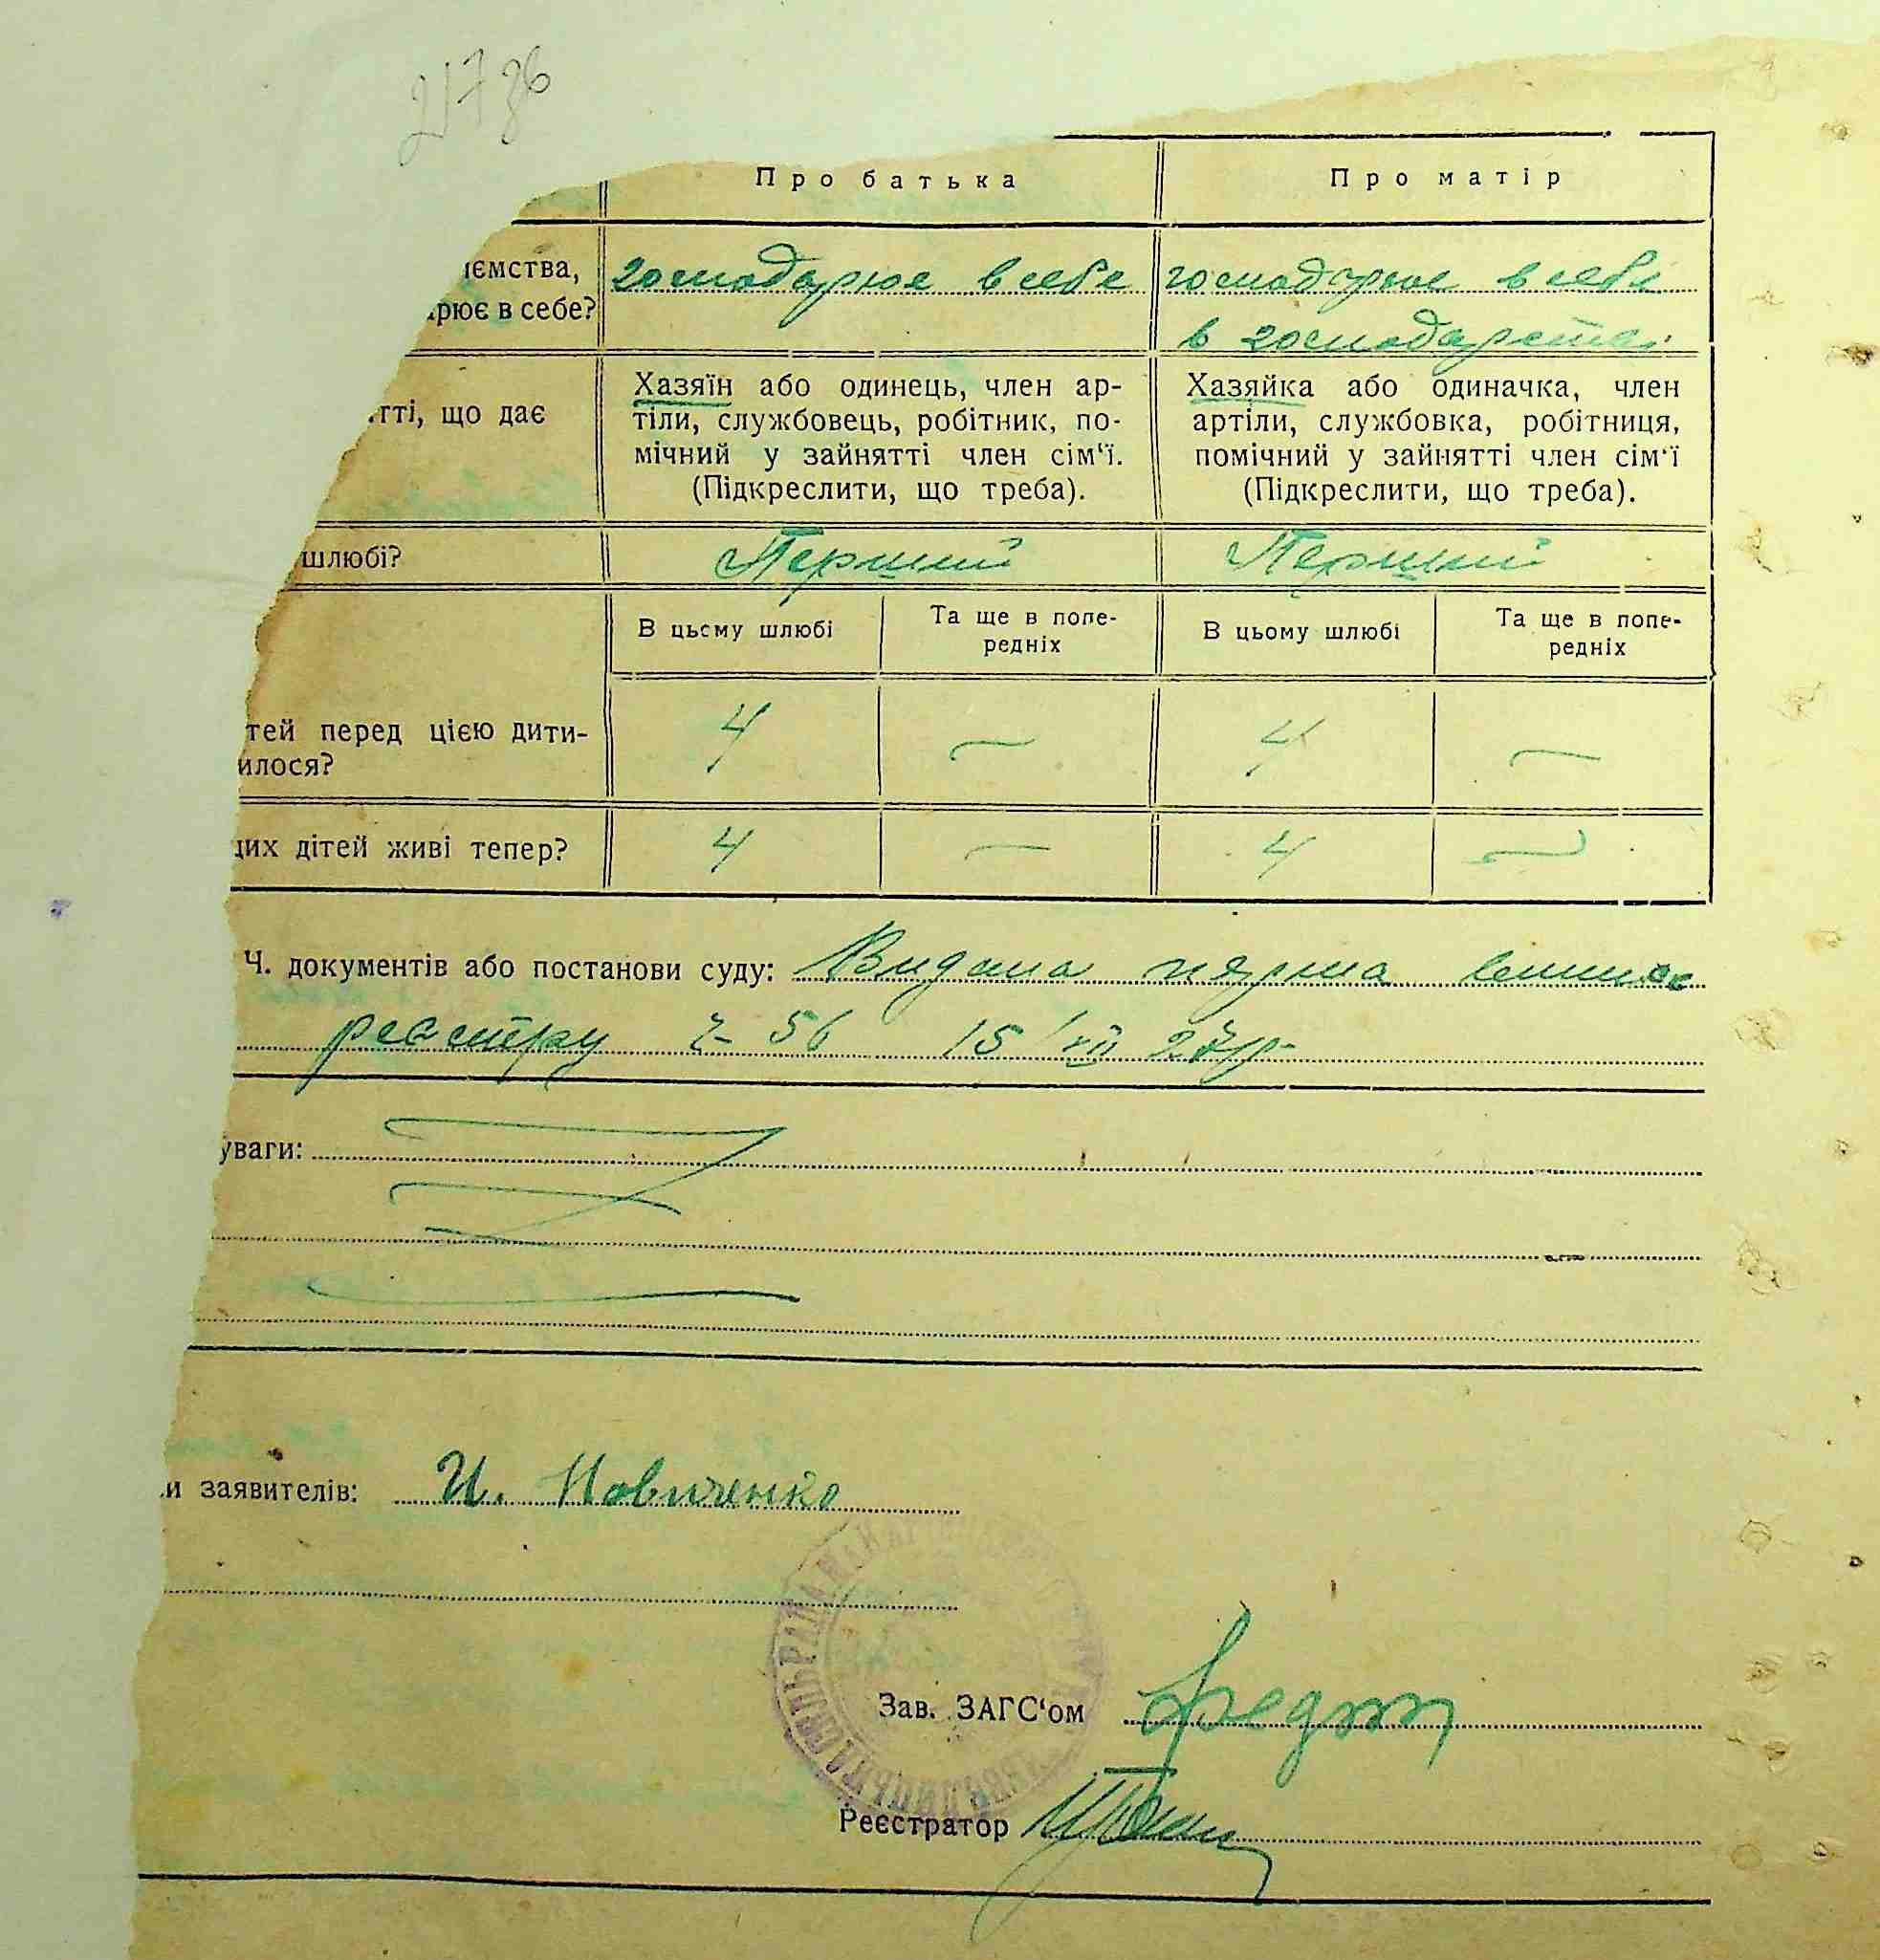 217зв
Про батька Про матір
ємства, господарює в себе господарює в себе
рює в себе? в господарстві
Хазяїн або одинець, член ар- Хазяйка або одиначка, член
тті, що дає тіли, службовець, робітник, по- артіли, службовка, робітниця,
мічний у зайнятті член сім‘ї. помічний у зайнятті член сім‘ї
(Підкреслити, що треба). (Підкреслити, що треба).
шлюбі? Перший Перший
В цьому шлюбі Та ще в попе- В цьому шлюбі Та ще в попе-
редніх редніх
тей перед цією дити- 4 — 4 —
илося?
цих дітей живі тепер? 4 — 4 —
Ч. документів або постанови суду: Видана перша
реєстру ч 56 15/VII 27 р.
уваги:
и заявителів: И. Новиченко
СІЛЬРАДА
Зав. ЗАГС‘ом
Реєстратор